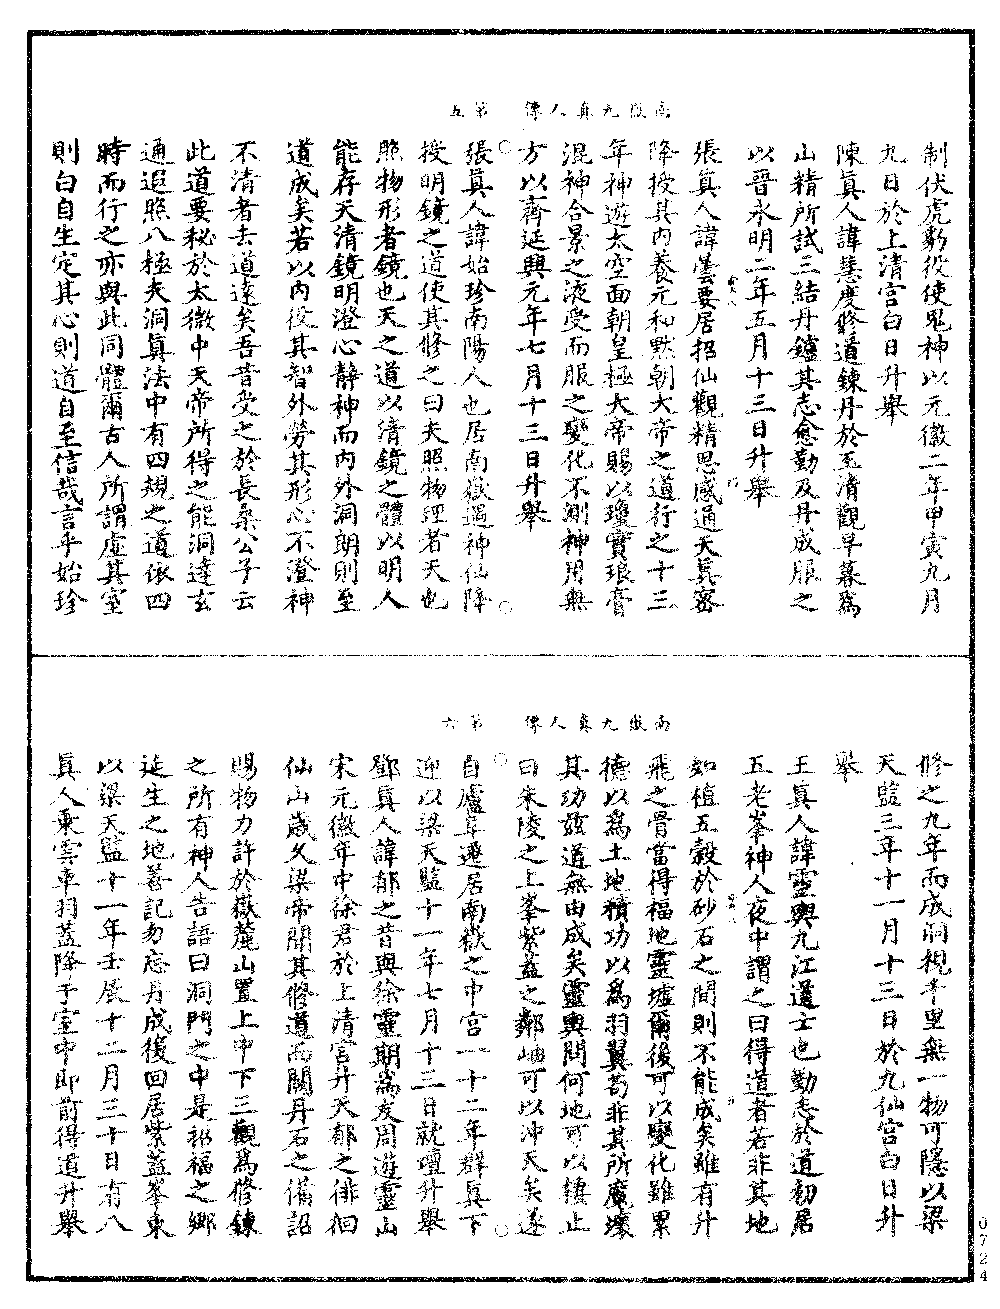 南嶽九真人傳　第五
制伏虎豹役使鬼神以元徽二年甲寅九月
九日於上清宮白日升舉
陳真人諱慧度修道鍊丹於玉清觀早暮為
山精所試三結丹鑪其志愈勤及丹成服之
以晉永明二年五月十三日升舉
張真人諱曇要居招仙觀精思感通天真密
降授其內養元和默朝大帝之道行之十三
年神遊太空面朝皇極大帝賜以瓊實琅膏
混神合景之液受而服之變化不測神用無
方以齊延興元年七月十三日升舉
張真人諱始珍南陽人也居南嶽遇神仙降
授明鏡之道使其修之曰夫照物理者天也
照物形者鏡也天之道以清鏡之體以明人
能存天清鏡明澄心靜神而內外洞朗則至
道成矣若以內役其智外勞其形心不澄神
不清者去道遠矣吾昔受之於長桑公子云
此道要秘於太微中天帝所得之能洞達玄
通追照八極夫洞真法中有四規之道依四
時而行之亦與此同體爾古人所謂虛其室
則白自生定其心則道自至信哉言乎始珍
南嶽九真人傳　第六
修之九年而成洞視千里無一物可隱以梁
天監三年十一月十三日於九仙宮白日升
舉
王真人諱靈輿九江道士也勤志於道初居
五老峯神人夜中謂之曰得道者若非其地
如植五穀於砂石之間則不能成矣雖有升
飛之骨當得福地靈墟爾後可以變化雖累
德以為土地積功以為羽翼苟非其所魔壞
其功茲道無由成矣靈輿問何地可以棲止
曰朱陵之上峯紫蓋之鄰岫可以沖天矣遂
自廬阜遷居南嶽之中宮一十二年群真下
迎以梁天監十一年七月十三日就壇升舉
鄧真人諱郁之昔與徐靈期為友周遊靈山
宋元徽年中徐君於上清宮升天郁之徘徊
仙山歲久梁帝聞其修道而闕丹石之備詔
賜物力許於嶽麓山置上中下三觀為修鍊
之所有神人告語曰洞門之中是招福之鄉
延生之地善記勿忘丹成後回居紫蓋峯東
以梁天監十一年壬辰十二月三十日有八
真人乘雲車羽蓋降于室中即前得道升舉
0724